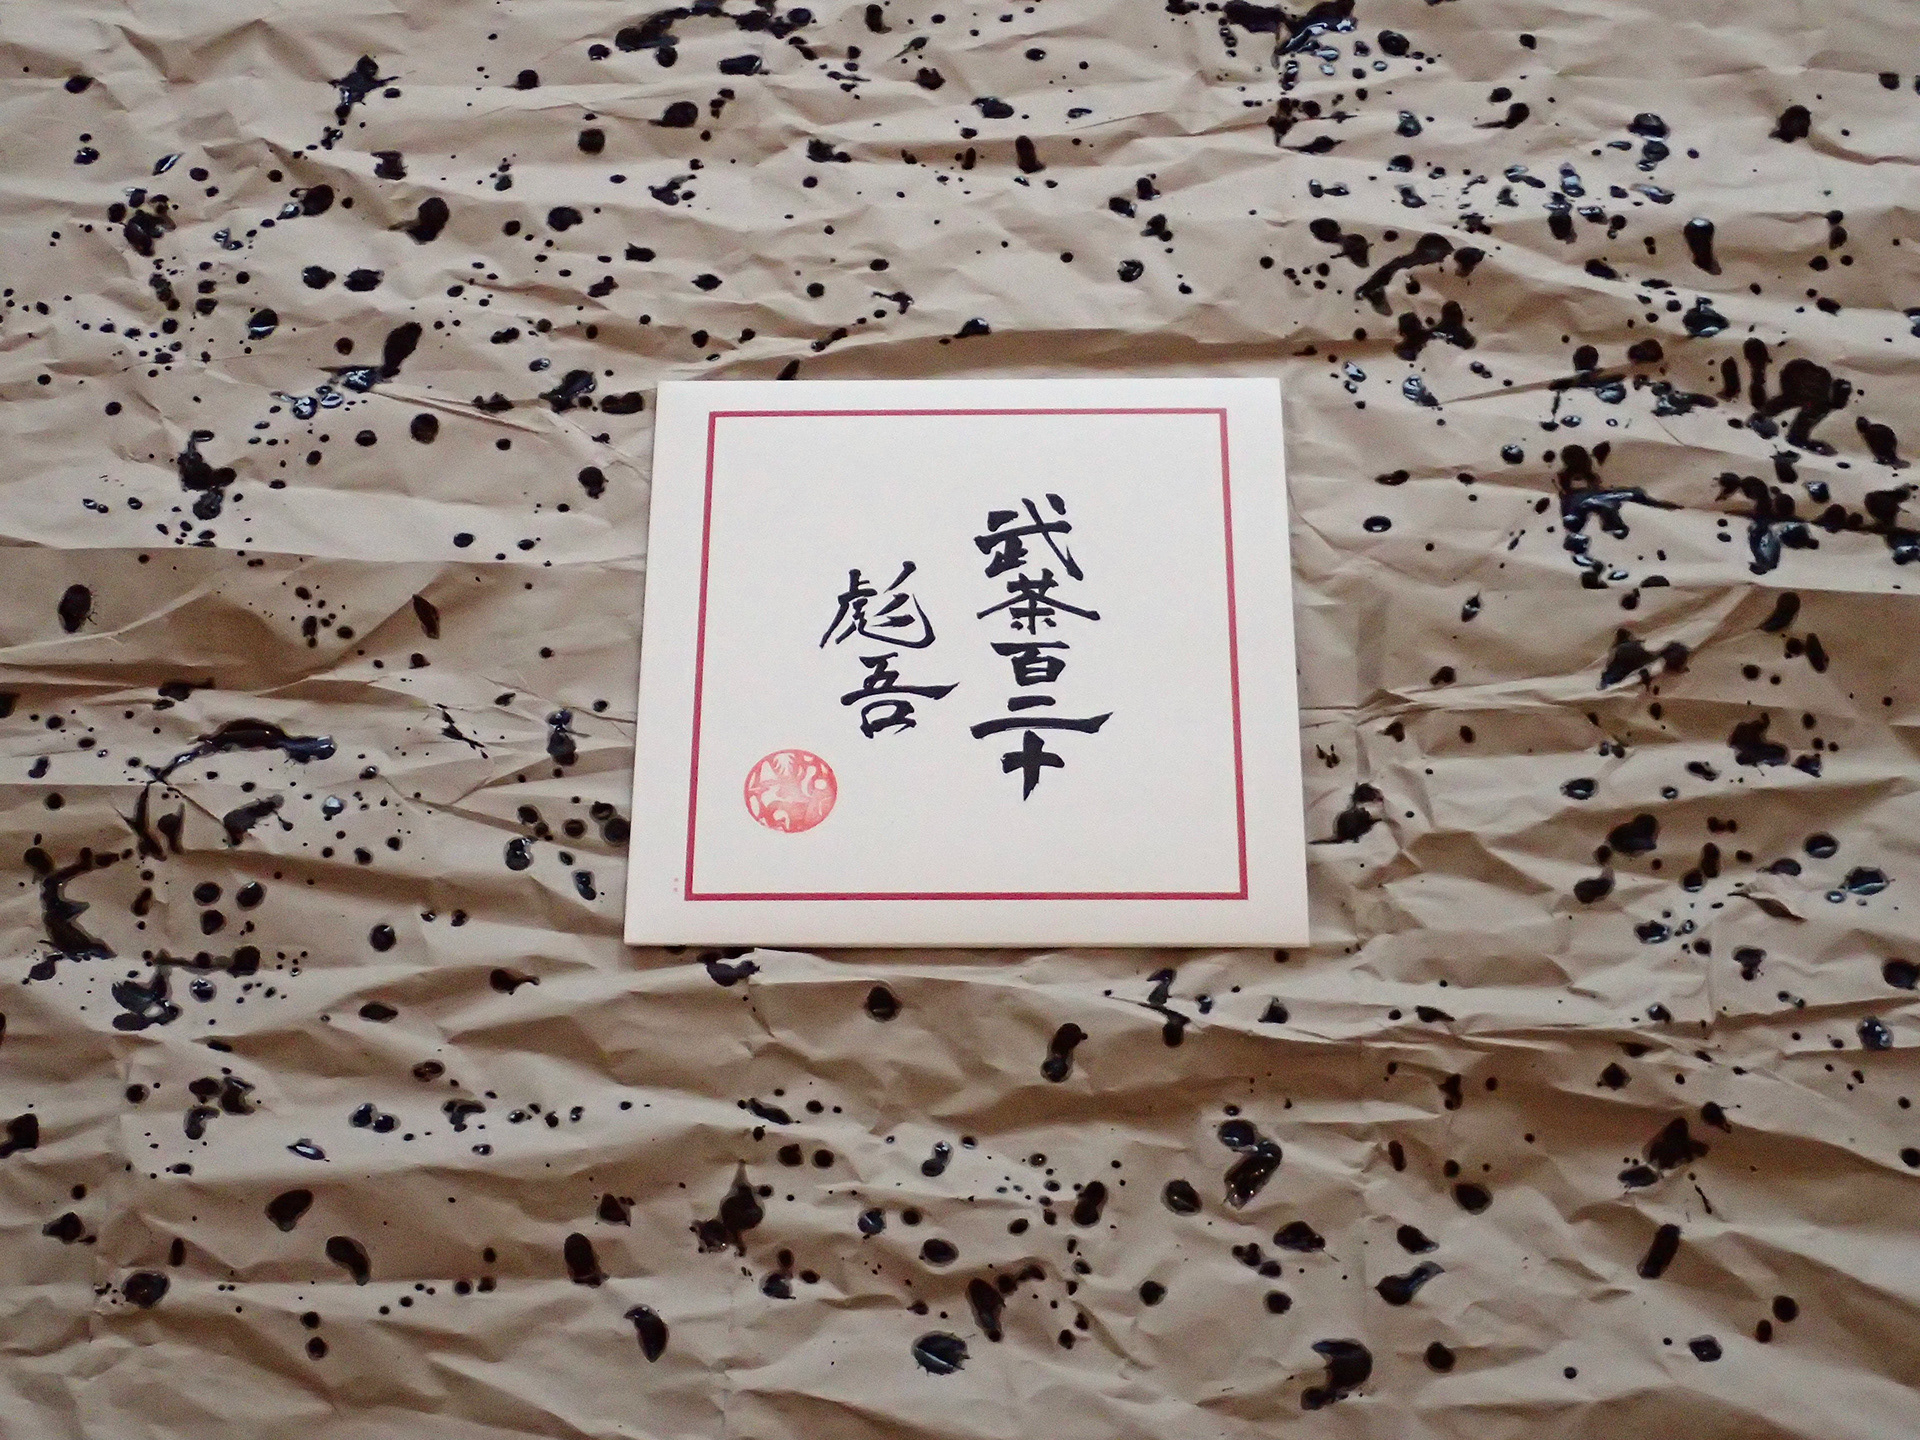 武茶百二十
彪吾